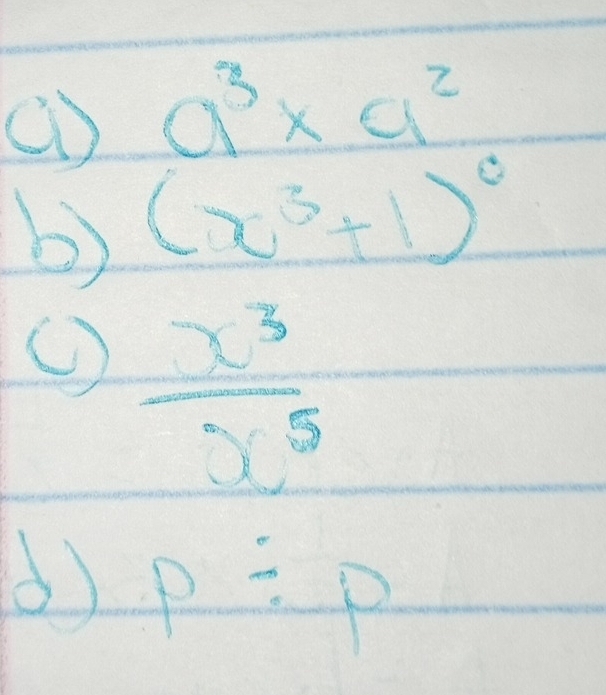 a) a³ × a²
b) (x³+1)⁰
c) x³/x⁵
d) p ÷ p